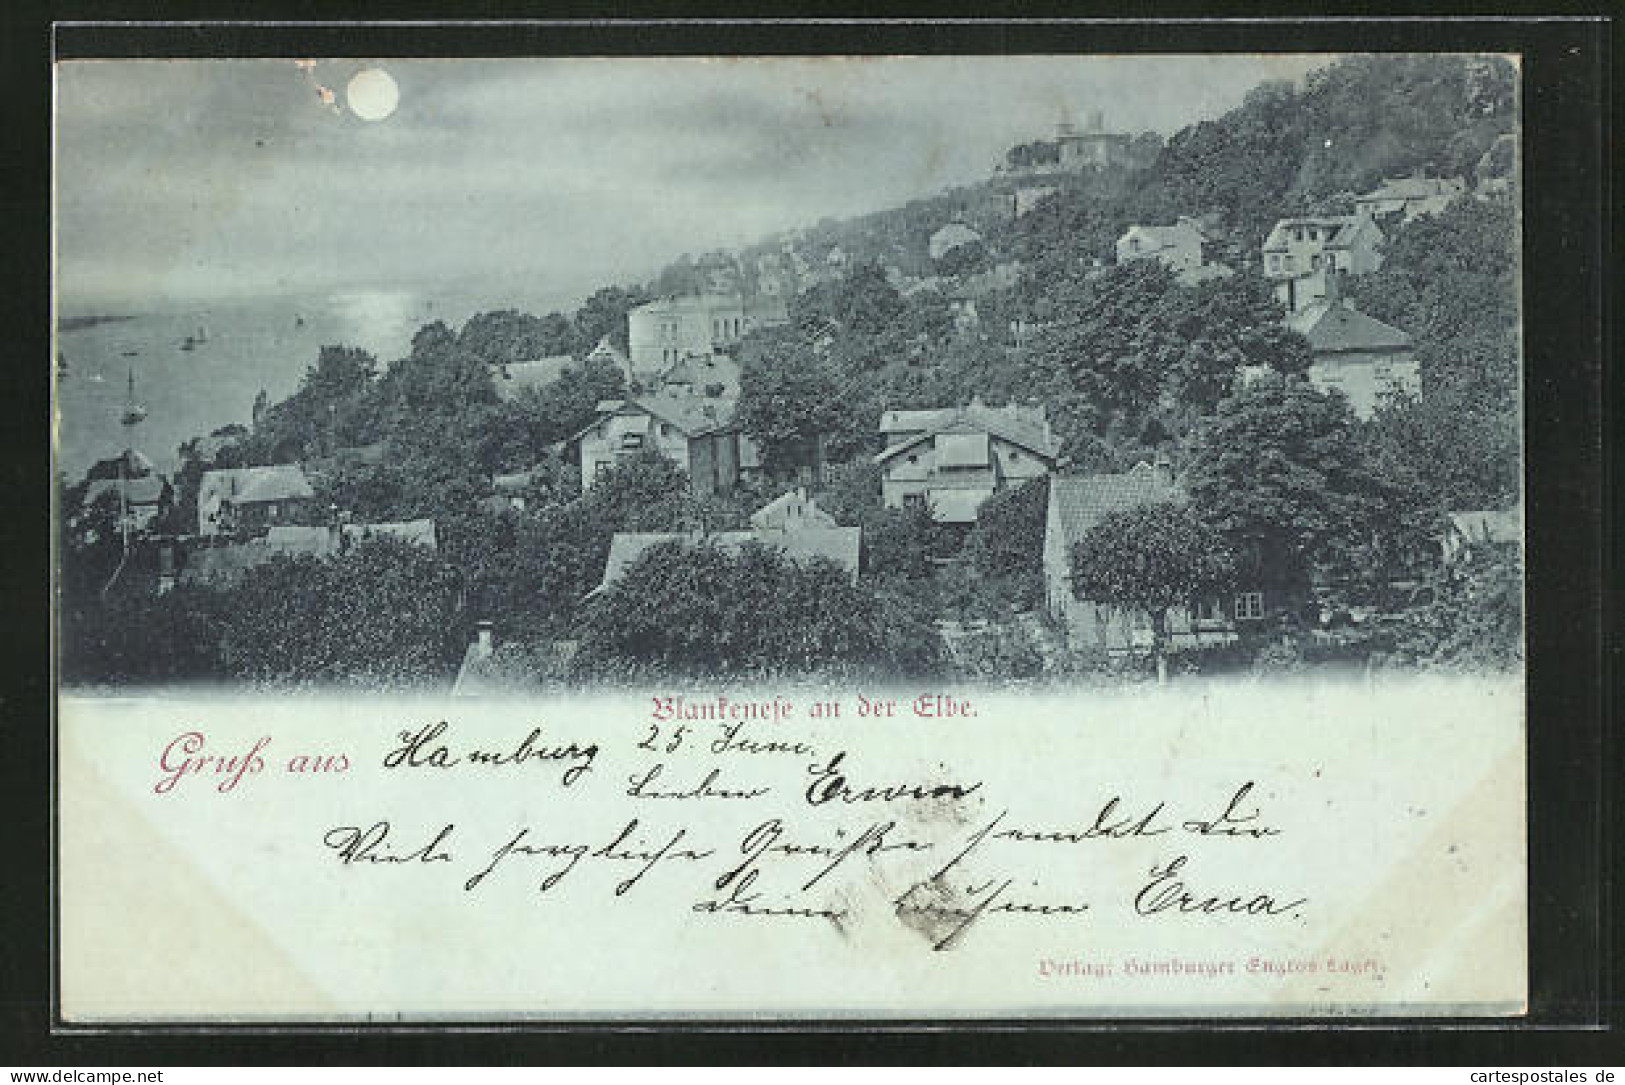 Blankenese an der Elbe.
Gruß aus Hamburg 25. Juni.
Lieber Erwin,
Viele herzliche Grüße sendet Dir
Deine Cousine Erna.
Verlag: Hamburger Engros-Lager.
delcampe.net
cartespostales de